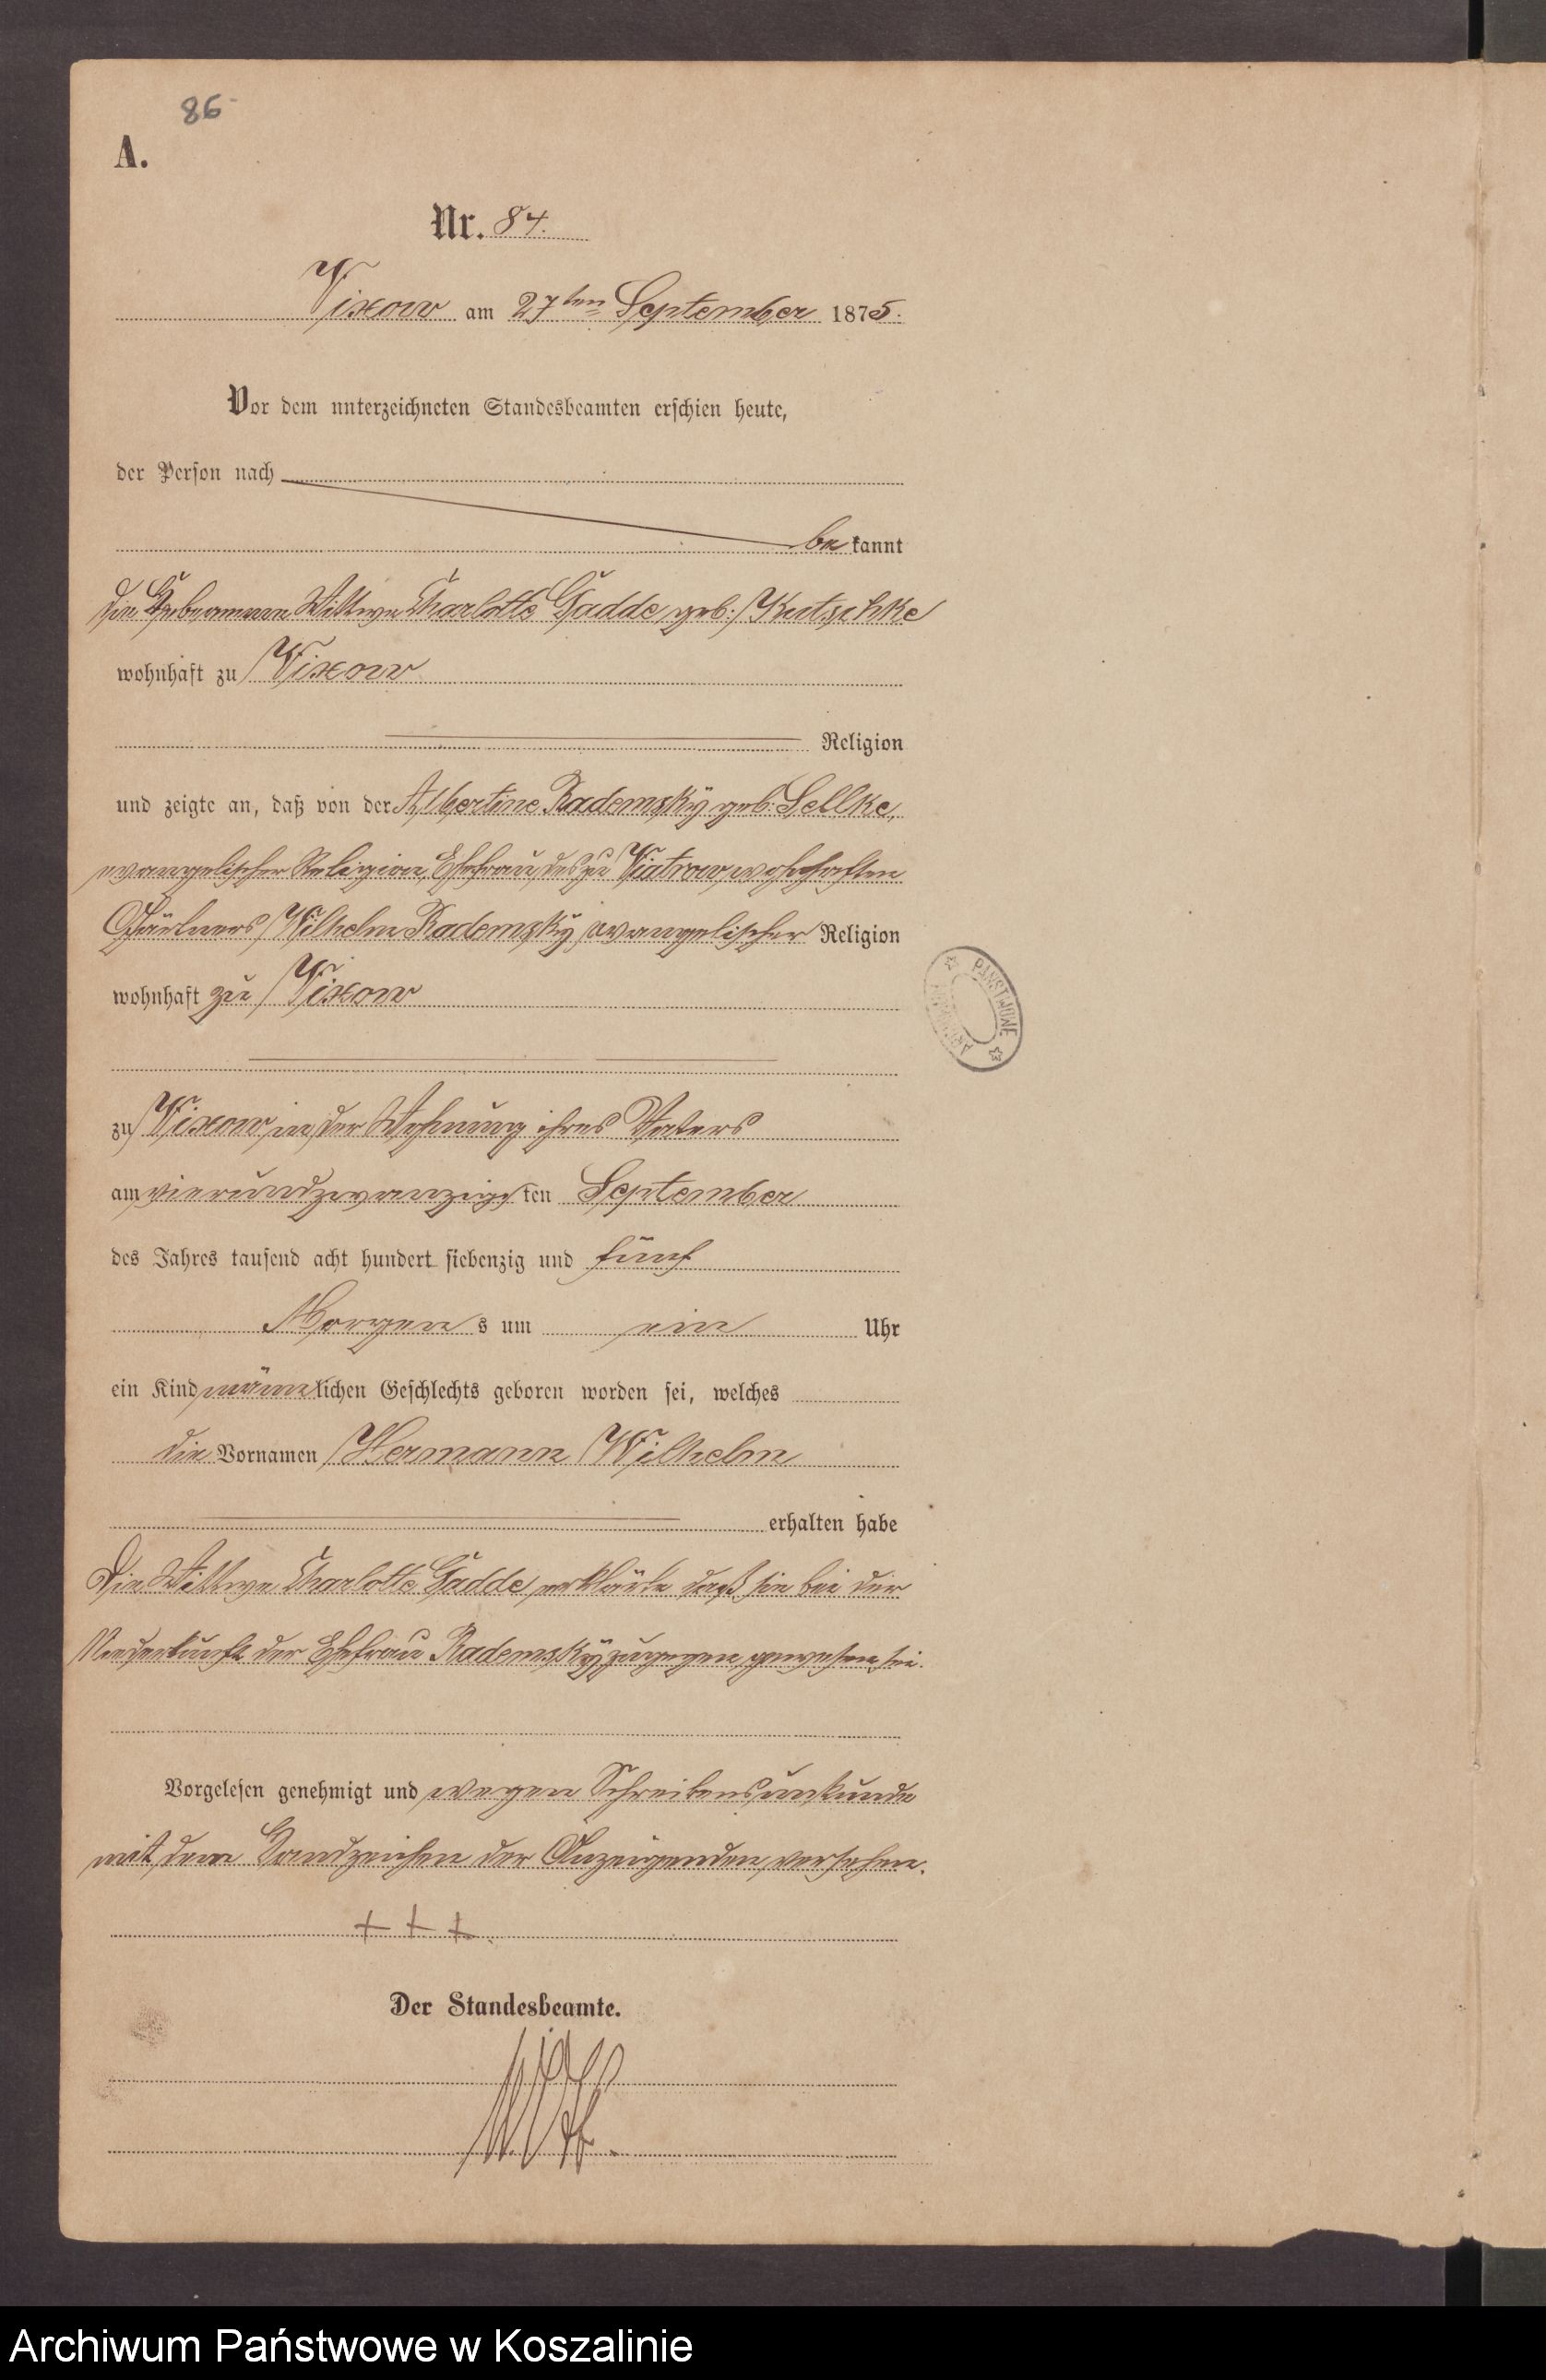 86
A.
Nr. 84.
Vixow am 27ten September 1875.
Vor dem unterzeichneten Standesbeamten erschien heute,
der Person nach
bekannt
die Hebeamme Wittwe Charlotte Gadde geb: Kutschke
wohnhaft zu Vixow
Religion
und zeigte an, daß von der Albertine Rademsky geb: Sellke,
evangelischer Religion, Ehefrau des zu Viatrow wohnhaften
Gärtners Wilhelm Rademsky evangelischer Religion
wohnhaft zu Vixow
zu Vixow in der Wohnung ihres Vaters
am vierundzwanzigsten September
des Jahres tausend acht hundert siebenzig und fünf
Morgens um ein Uhr
ein Kind männlichen Geschlechts geboren worden sei, welches
die Vornamen Hermann Wilhelm
erhalten habe
Die Wittwe Charlotte Gadde erklärte daß sie bei der
Niederkunft der Ehefrau Rademsky zugegen gewesen sei.
Vorgelesen genehmigt und wegen Schreibensunkunde
mit dem Handzeichen der Anzeigenden versehen.
+ + +
Der Standesbeamte.
PAŃSTWOWE
Archiwum Państwowe w Koszalinie